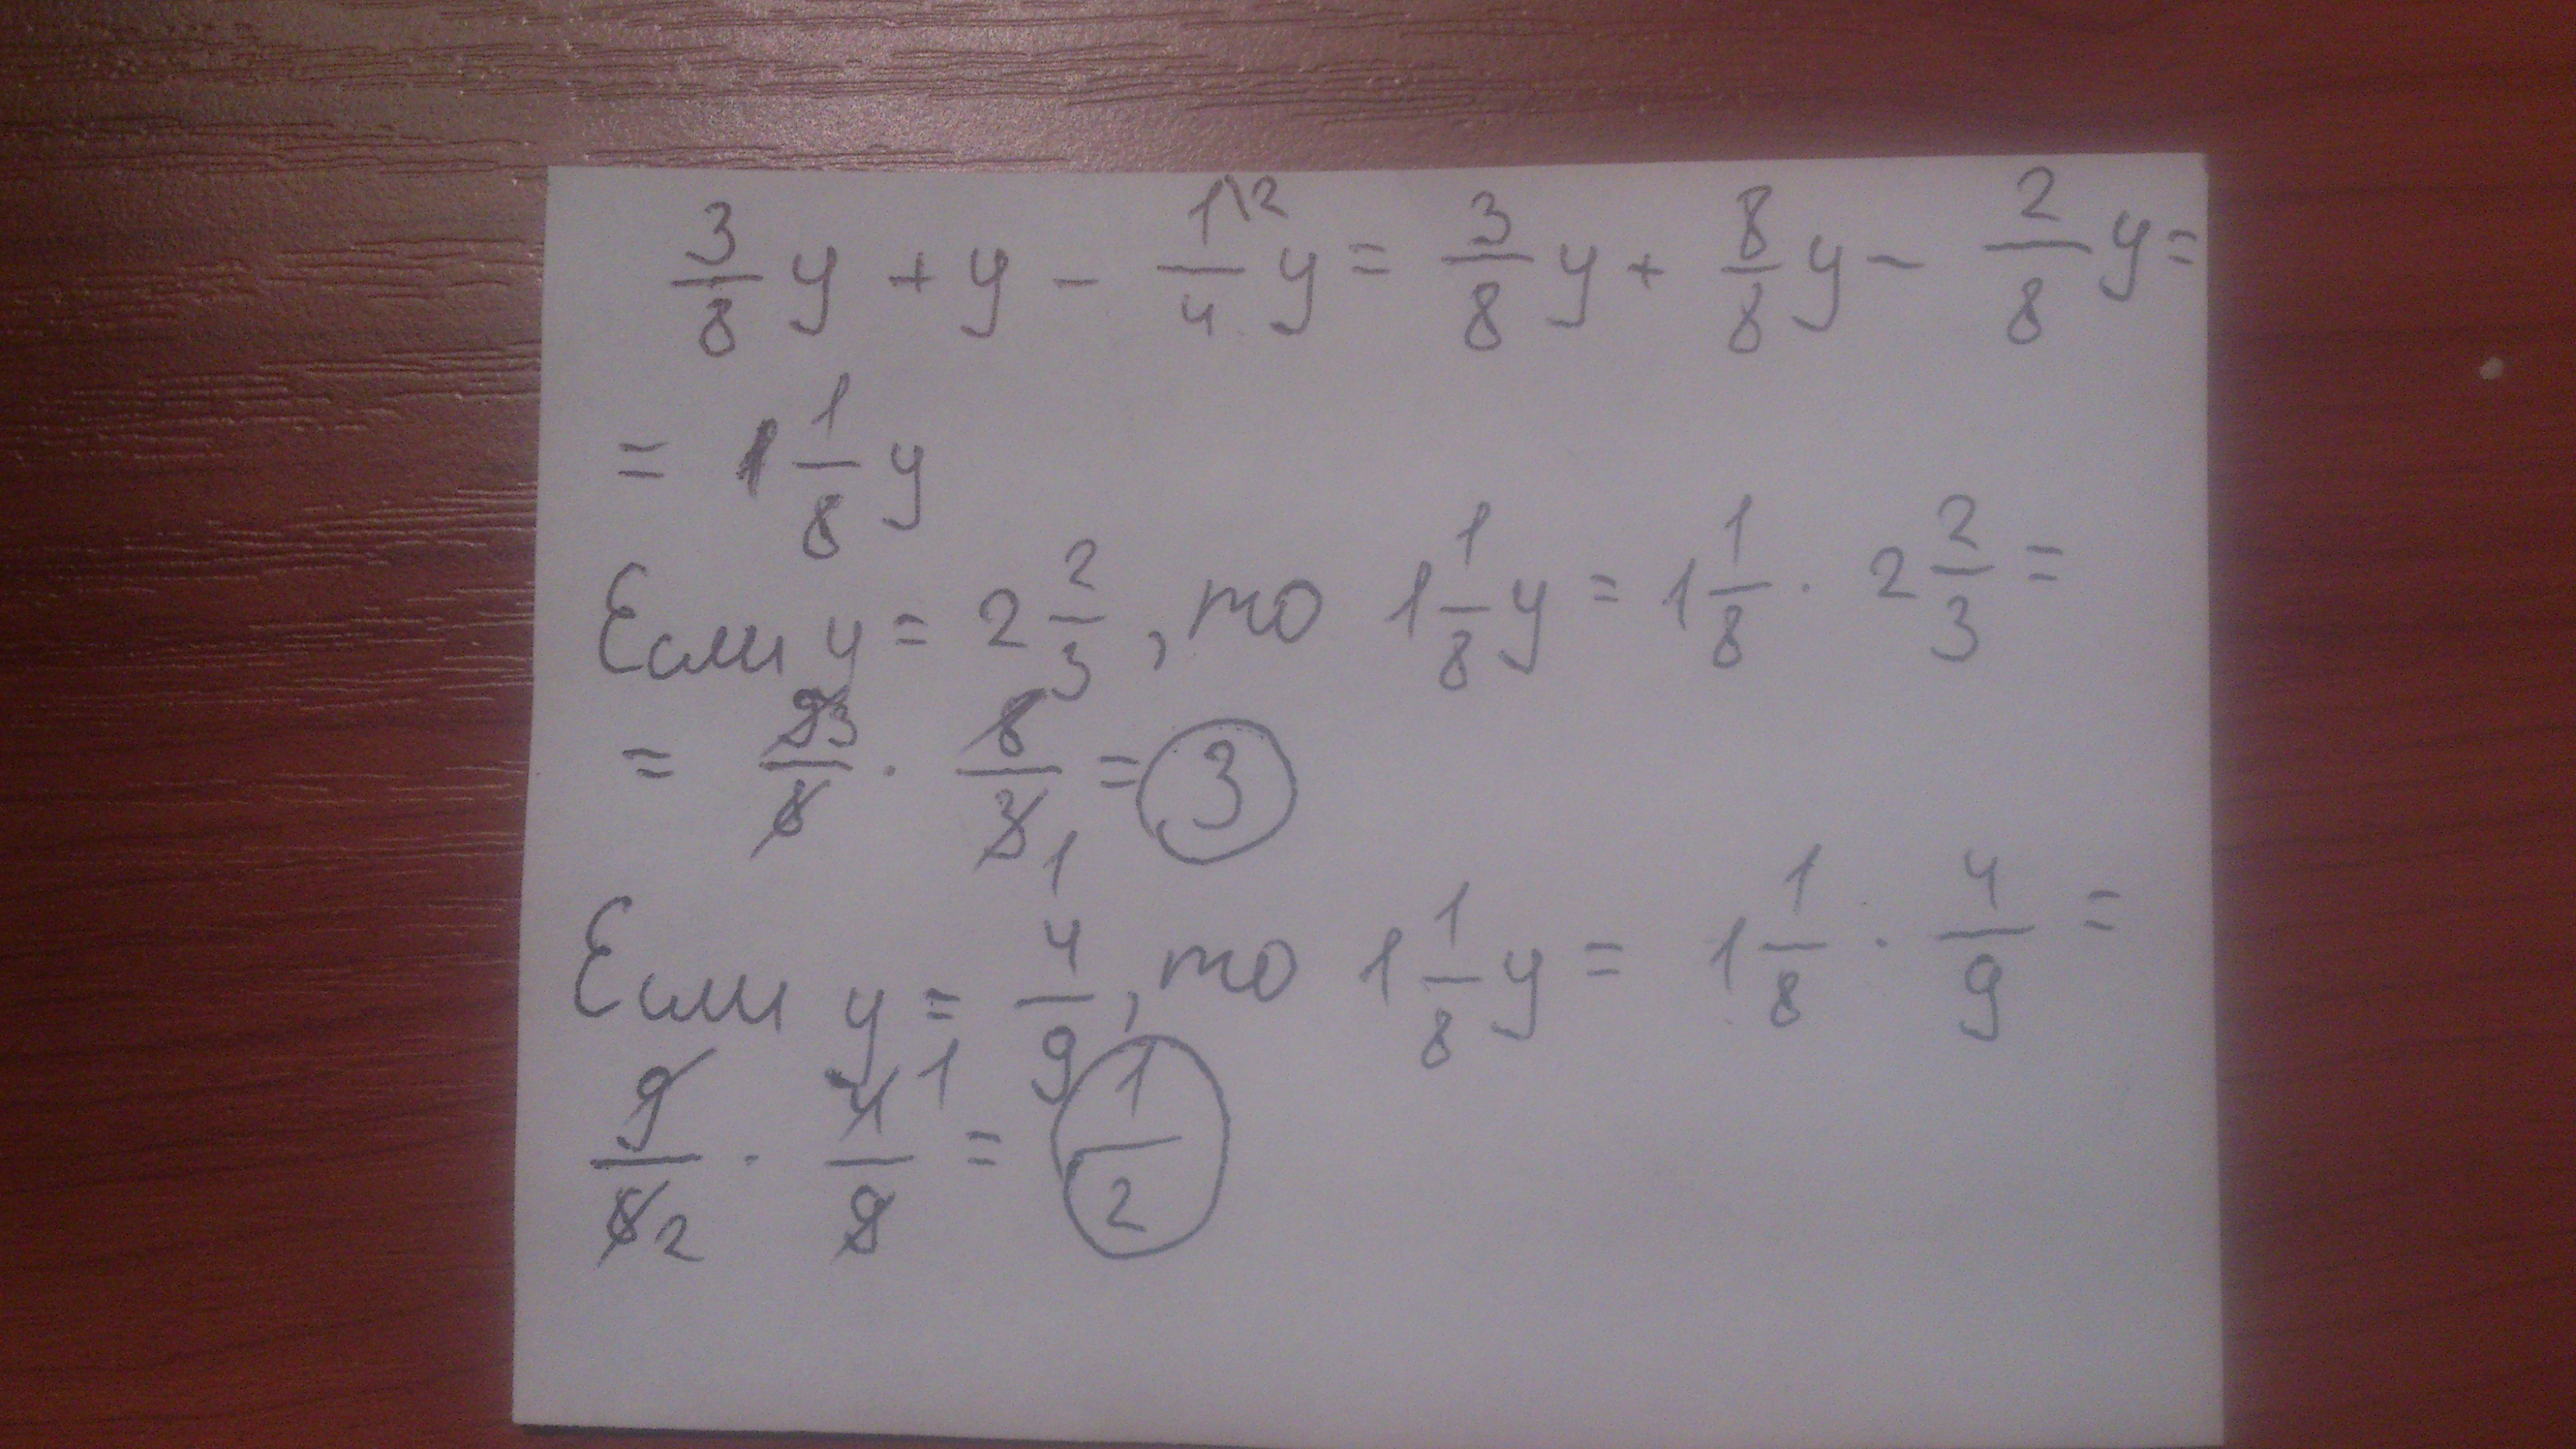 3/8 y + y - 1\2/4 y = 3/8 y + 8/8 y - 2/8 y =
= 1 1/8 y
Если y = 2 2/3, то 1 1/8 y = 1 1/8 · 2 2/3 =
= 9 3/8 · 8/3 1 = 3
Если y = 4/9, то 1 1/8 y = 1 1/8 · 4/9 =
9/8 2 · 4 1/9 = 1/2